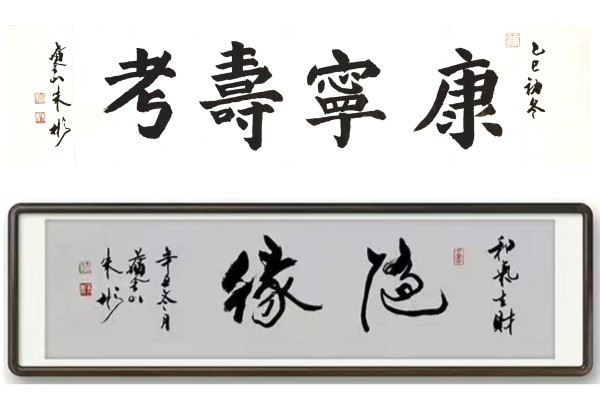 乙巳初冬
康寧壽考
朱彬
和氣生財
随緣
辛丑冬月
朱彬